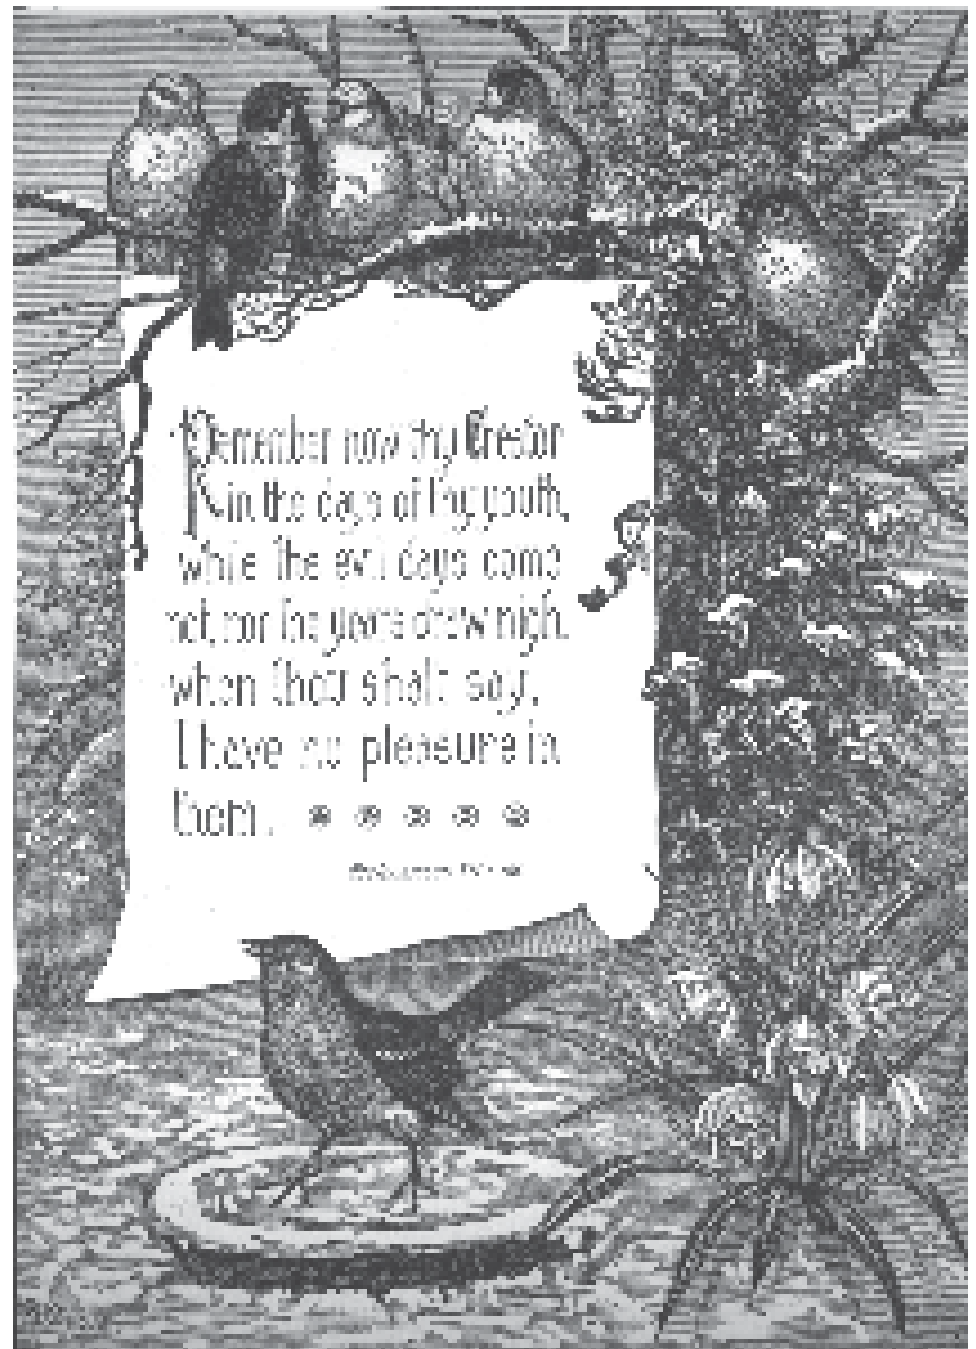 Remember now thy Creator
in the days of thy youth,
while the evil days come
not, nor the years draw nigh,
when thou shalt say,
I have no pleasure in
them.